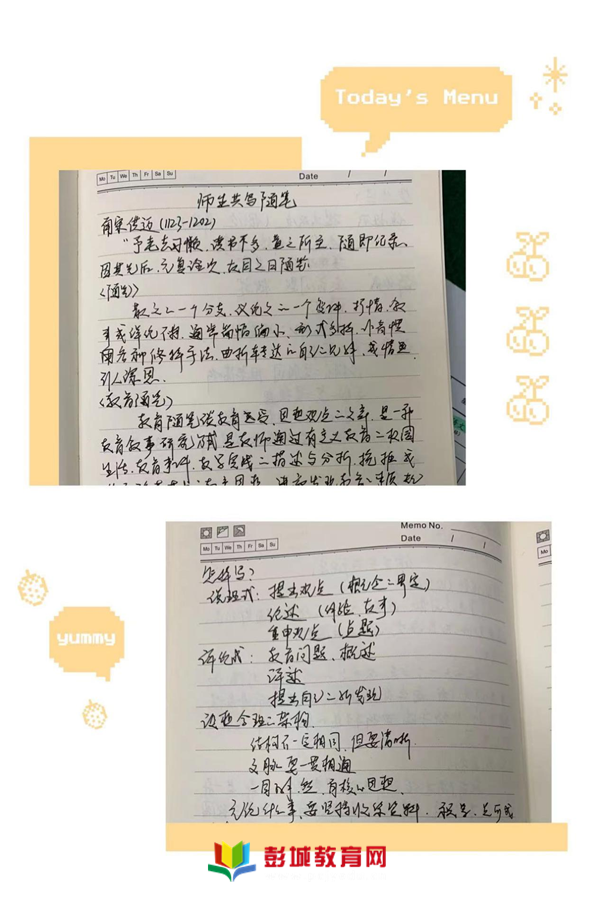 Today's Menu
Mo Tu We Th Fr Sa Su
Date / /
师生共写随笔
南宋洪迈(1123-1202)
“予老去习懒,读书不多,意之所之,随即纪录。
因其先后,无复诠次,故目之曰随笔
《随笔》
散文之一个分支,议论文之一个变体,抒情、叙
事或评论不拘,通常篇幅偏小,形式多样,作者惯
用各种修辞手法,曲折转达自己之见解,或情思
引人深思。
《教育随笔》
教育随笔谈教育思想观点之文章,是一种
教育叙事研究方式,是教师通过有意义教育之校园
生活、教育事件、教学实践之描述与分析,挖掘或
Memo No.
Date / /
Mo Tu We Th Fr Sa Su
Mo
怎样写?
说理式:提出观点(概念之界定)
论述(例证、故事)
重申观点(点题)
评论式:教育问题、概述
评述
提出自己之所发现
议题合理之架构
结构不一定相同,但要清晰
文脉要一贯相通
一目了然,有核心思想
无论什么事,要坚持收集资料
yummy
彭城教育网